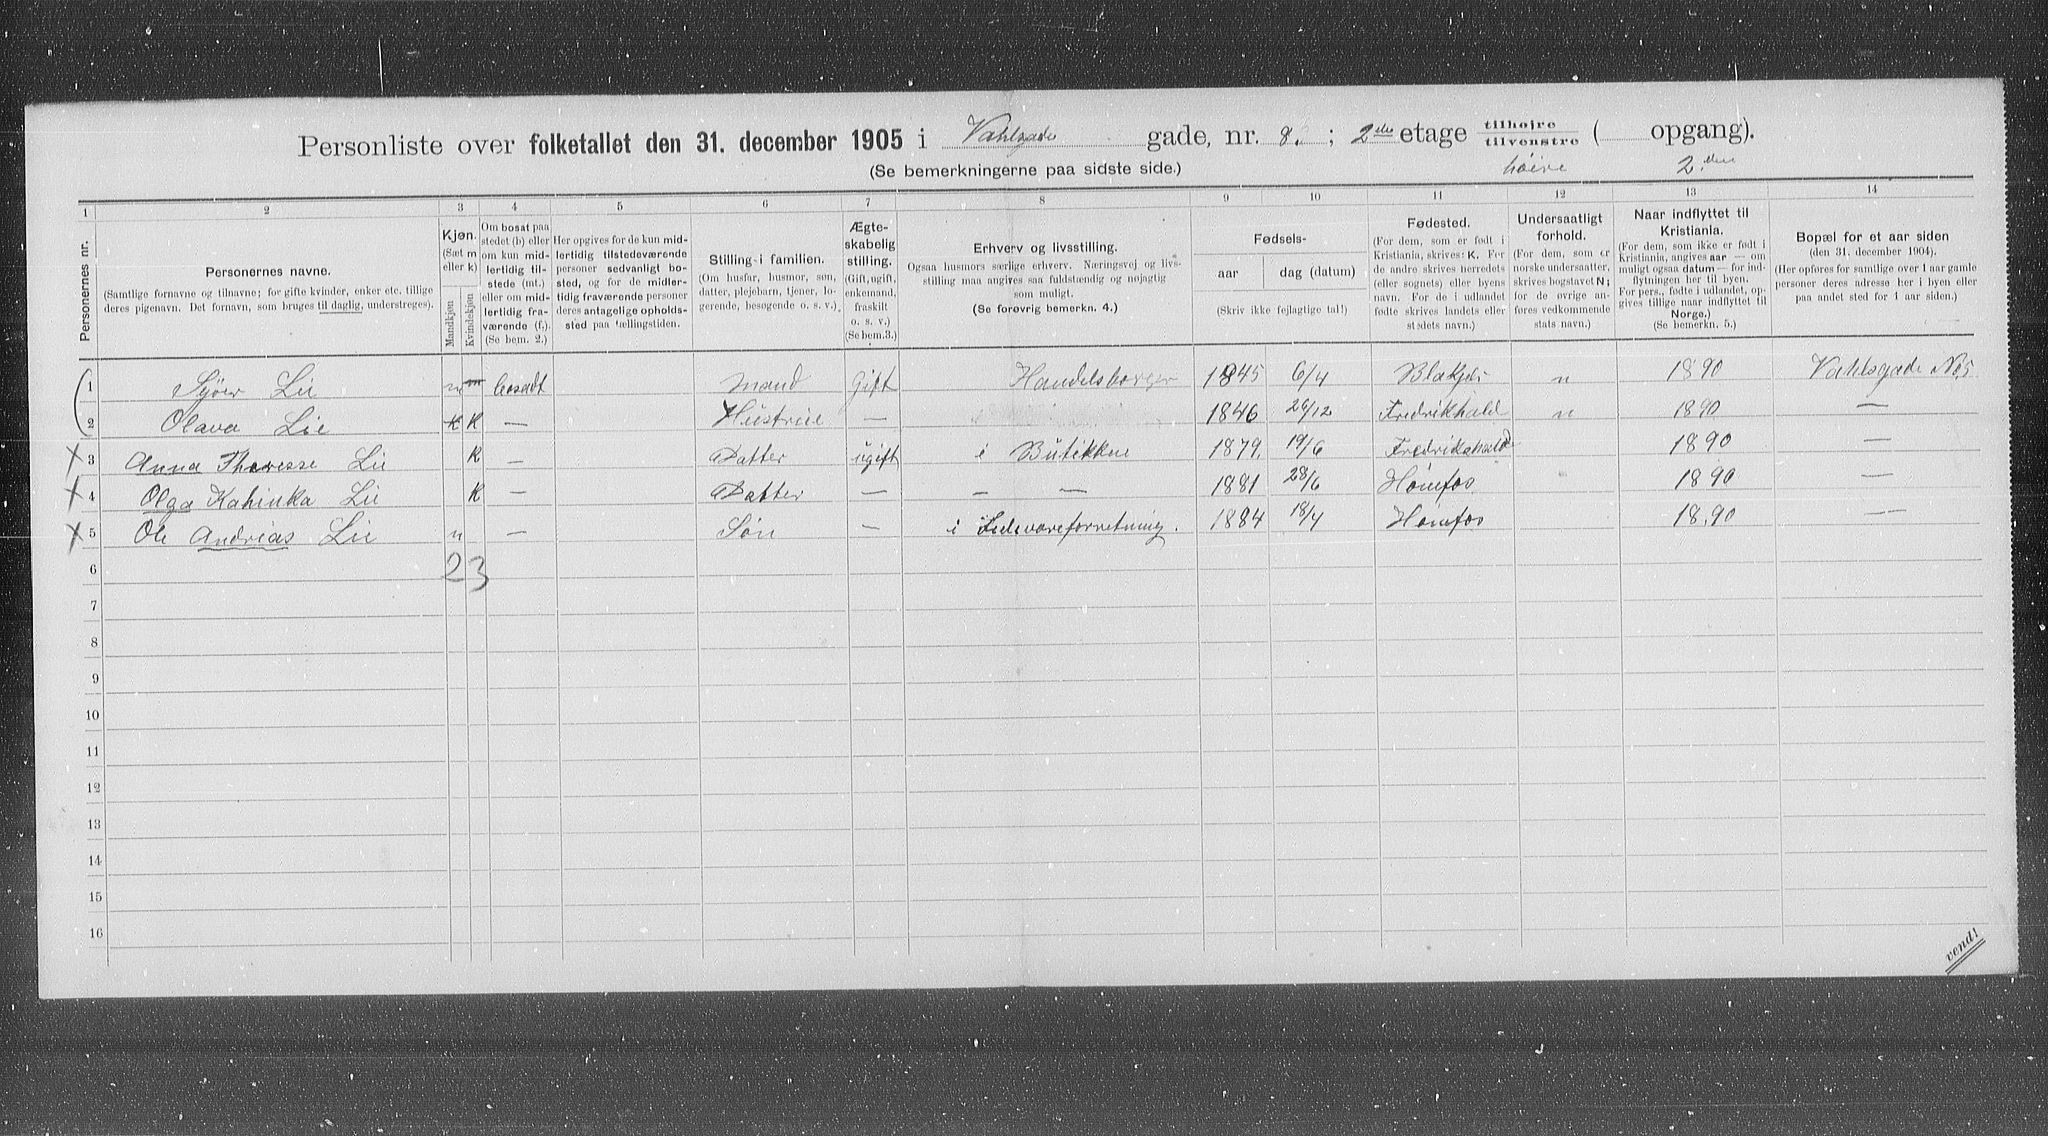 Personliste over folketallet den 31. december 1905 i Vahlsgade gade, nr. 8. ; 2den etage tilhøjre / tilvenstre ( opgang).
(Se bemerkningerne paa sidste side.) høire 2.den
1 2 3 4 5 6 7 8 9 10 11 12 13 14
Personernes nr.
Personernes navne.
(Samtlige fornavne og tilnavne; for gifte kvinder, enker etc. tillige deres pigenavn. Det fornavn, som bruges til daglig, understreges).
Kjøn. (Sæt m eller k) Mandkjøn Kvindekjøn
Om bosat paa stedet (b) eller om kun midlertidig tilstede (mt.) eller om midlertidig fraværende (f.). (Se bem. 2.)
Her opgives for de kun midlertidig tilstedeværende personer sedvanligt bosted, og for de midlertidig fraværende personer deres antagelige opholdssted paa tællingstiden.
Stilling i familien.
(Om husfar, husmor, søn, datter, plejebarn, tjener, logerende, besøgende o. s. v.)
Ægteskabelig stilling.
(Gift, ugift, enkemand, fraskilt o. s. v.) (Se bem. 3.)
Erhverv og livsstilling.
Ogsaa husmors særlige erhverv. Næringsvej og livsstilling maa angives saa fuldstændig og nøjagtig som muligt.
(Se forøvrig bemerkn. 4.)
Fødsels-
aar dag (datum)
(Skriv ikke fejlagtige tal!)
Fødested.
(For dem, som er født i Kristiania, skrives: K. For de andre skrives herredets (eller sognets) eller byens navn. For de i udlandet fødte skrives landets eller stedets navn.)
Undersaatligt forhold.
(For dem, som er norske undersaatter, skrives bogstavet N; for de øvrige anføres vedkommende stats navn.)
Naar indflyttet til Kristiania.
(For dem, som ikke er født i Kristiania, angives aar — om muligt ogsaa datum — for indflytningen her til byen. For pers., fødte i udlandet, opgives tillige naar indflyttet til Norge.)
(Se bemerkn. 5.)
Bopæl for et aar siden
(den 31. december 1904).
(Her opføres for samtlige over 1 aar gamle personer deres adresse her i byen eller paa andet sted for 1 aar siden.)
1 Syver Lie m bosadt mand Gift Handelsborger 1845 6/4 Blakjer n 1890 Vahlsgade No 5
2 Olava Lie K K — Hustrue — 1846 26/12 Fredrikhald n 1890 —
3 Anna Theresse Lie K — Datter ugift i Butikken 1879. 19/6 Fredrikshald 1890 —
4 Olga Kahinka Lie K — Datter — — — 1881 28/6 Hønefos 1890 —
5 Ole Andrias Lie — Søn — i forretning. 1884 18/4 Hønefos 1890 —
6 2 3
7
8
9
10
11
12
13
14
15
16
vend!